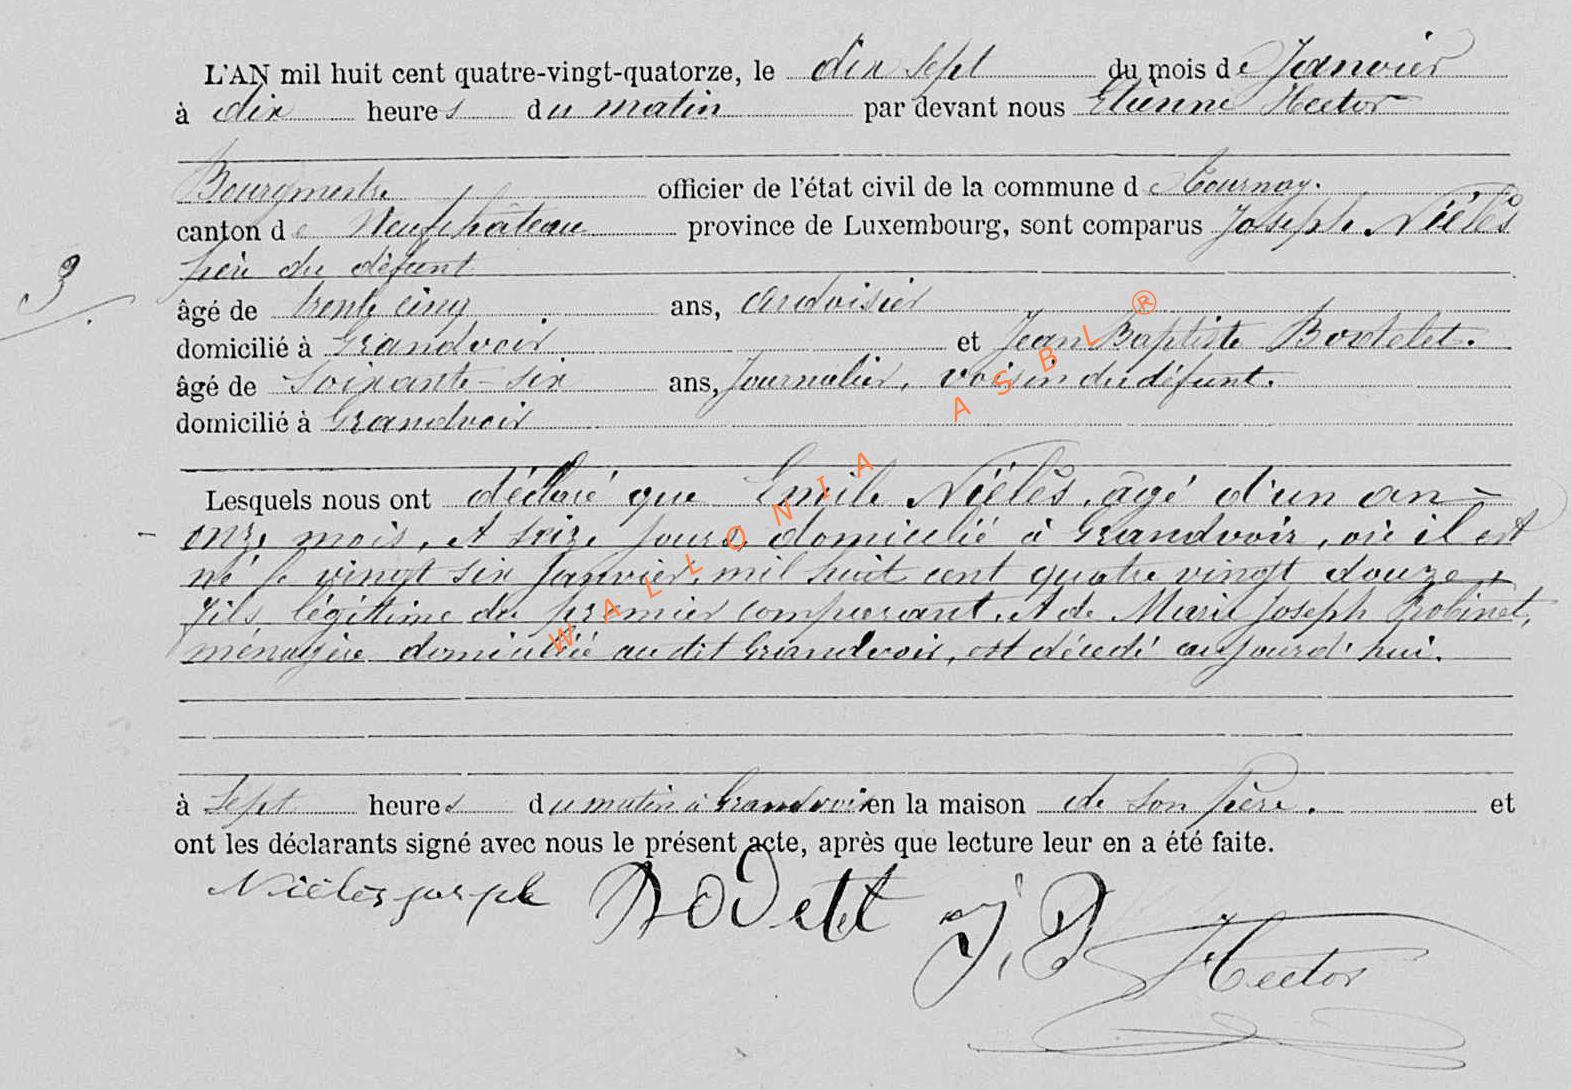 L'AN mil huit cent quatre-vingt-quatorze, le dix sept du mois de Janvier
à dix heures du matin par devant nous Etienne Hector
Bourgmestre officier de l'état civil de la commune d Tournay.
canton de Neufchâteau province de Luxembourg, sont comparus Joseph Niélès
père du défunt
3
âgé de trente cinq ans, ardoisier
domicilié à Grandvoir et Jean Baptiste Bodelet.
âgé de soixante-six ans, Journalier, voisin du défunt.
domicilié à Grandvoir
Lesquels nous ont déclaré que Emile Niélès, âgé d'un an -
- onze mois, et seize jours domicilié à Grandvoir, où il est
né le vingt six Janvier, mil huit cent quatre vingt douze,
fils légittime du premier comparant, et de Marie Joseph Robinet,
ménagère domiciliée au dit Grandvoir, est décédé aujourd'hui.
à sept heures du matin à Grandvoir en la maison de son père. et
ont les déclarants signé avec nous le présent acte, après que lecture leur en a été faite.
Niélès joseph J. B Hector
WALLONIA ASBL ®